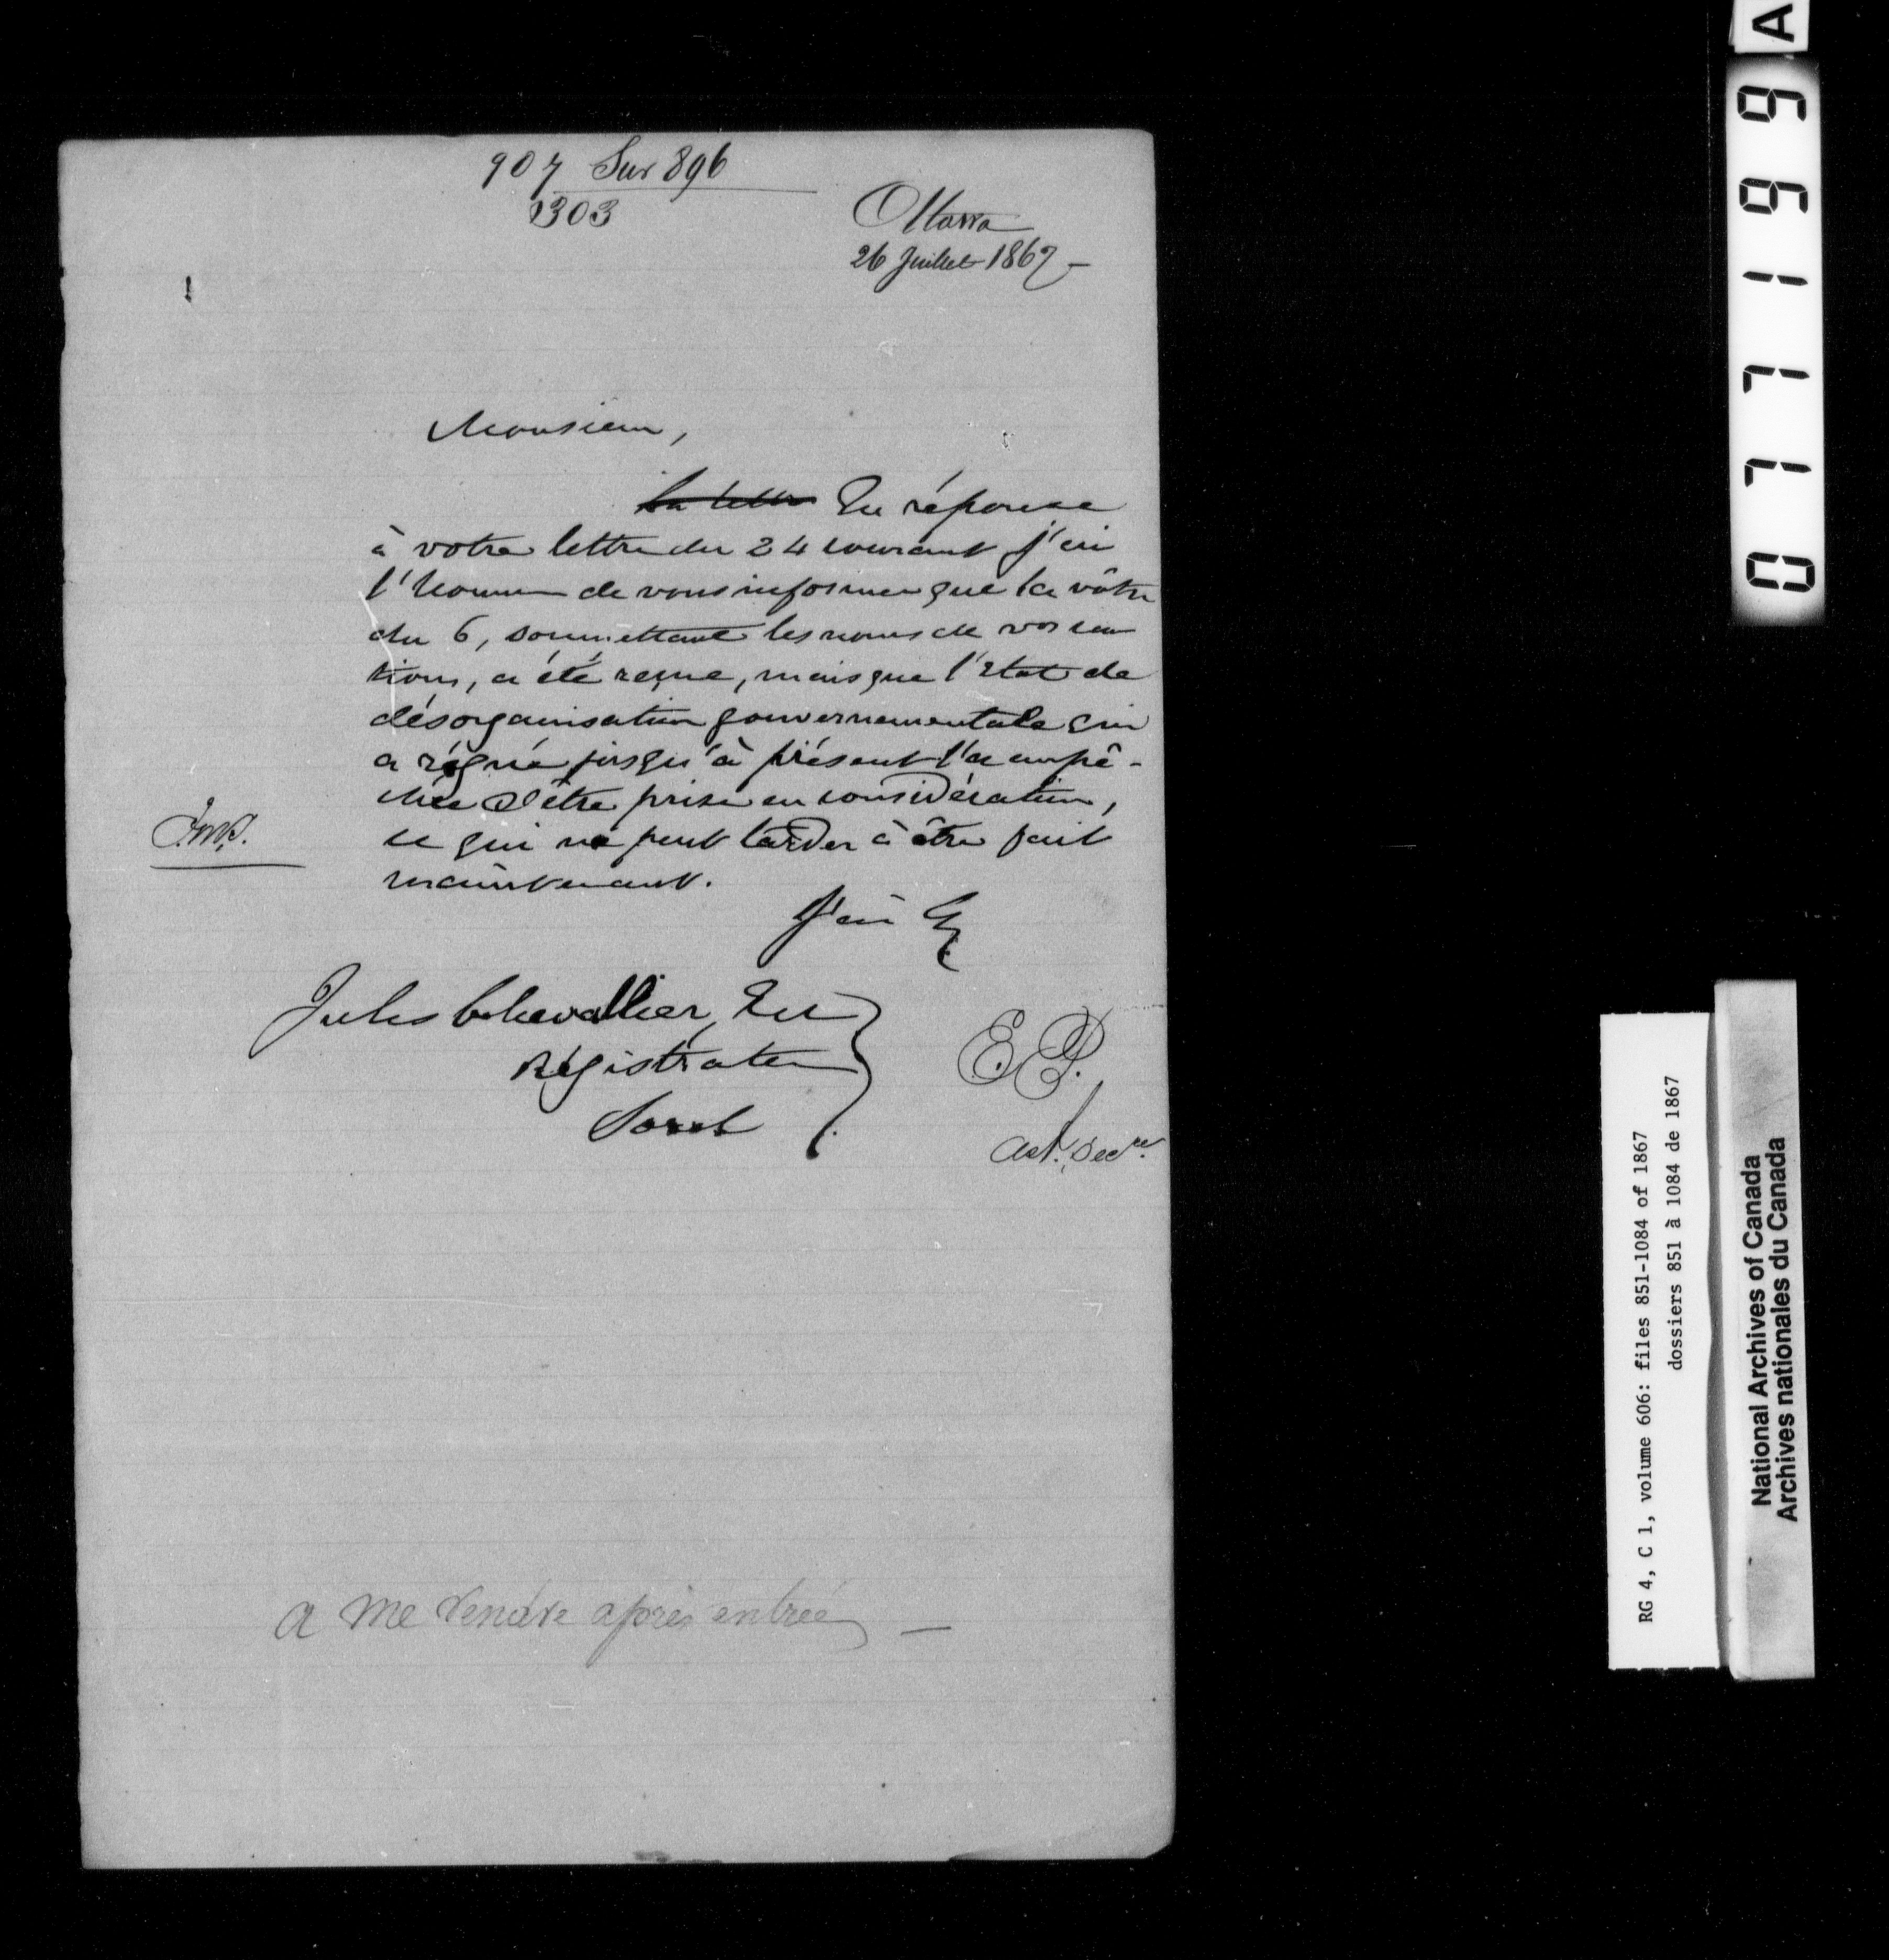 907 Sur 896
1303
Ottawa
26 Juillet 1867 –
Monsieur,
La lettre En réponse
à votre lettre du 24 courant j'ai
l'honneur de vous informer que la vôtre
du 6, soumettant les noms de vos cau
tions, a été reçue, mais que l'état de
désorganisation gouvernementale qui
a régné jusqu'à présent l'a empê-
chée d'être prise en considération,
ce qui ne peut tarder à être fait
maintenant.
J'ai &
Jules Chevallier, Ecr
Régistrateur
Sorel
E.P.
Ast. Secre.
A me rendre après entrée –
077199
A
RG 4, C 1, volume 606: files 851-1084 of 1867
dossiers 851 à 1084 de 1867
National Archives of Canada
Archives nationales du Canada